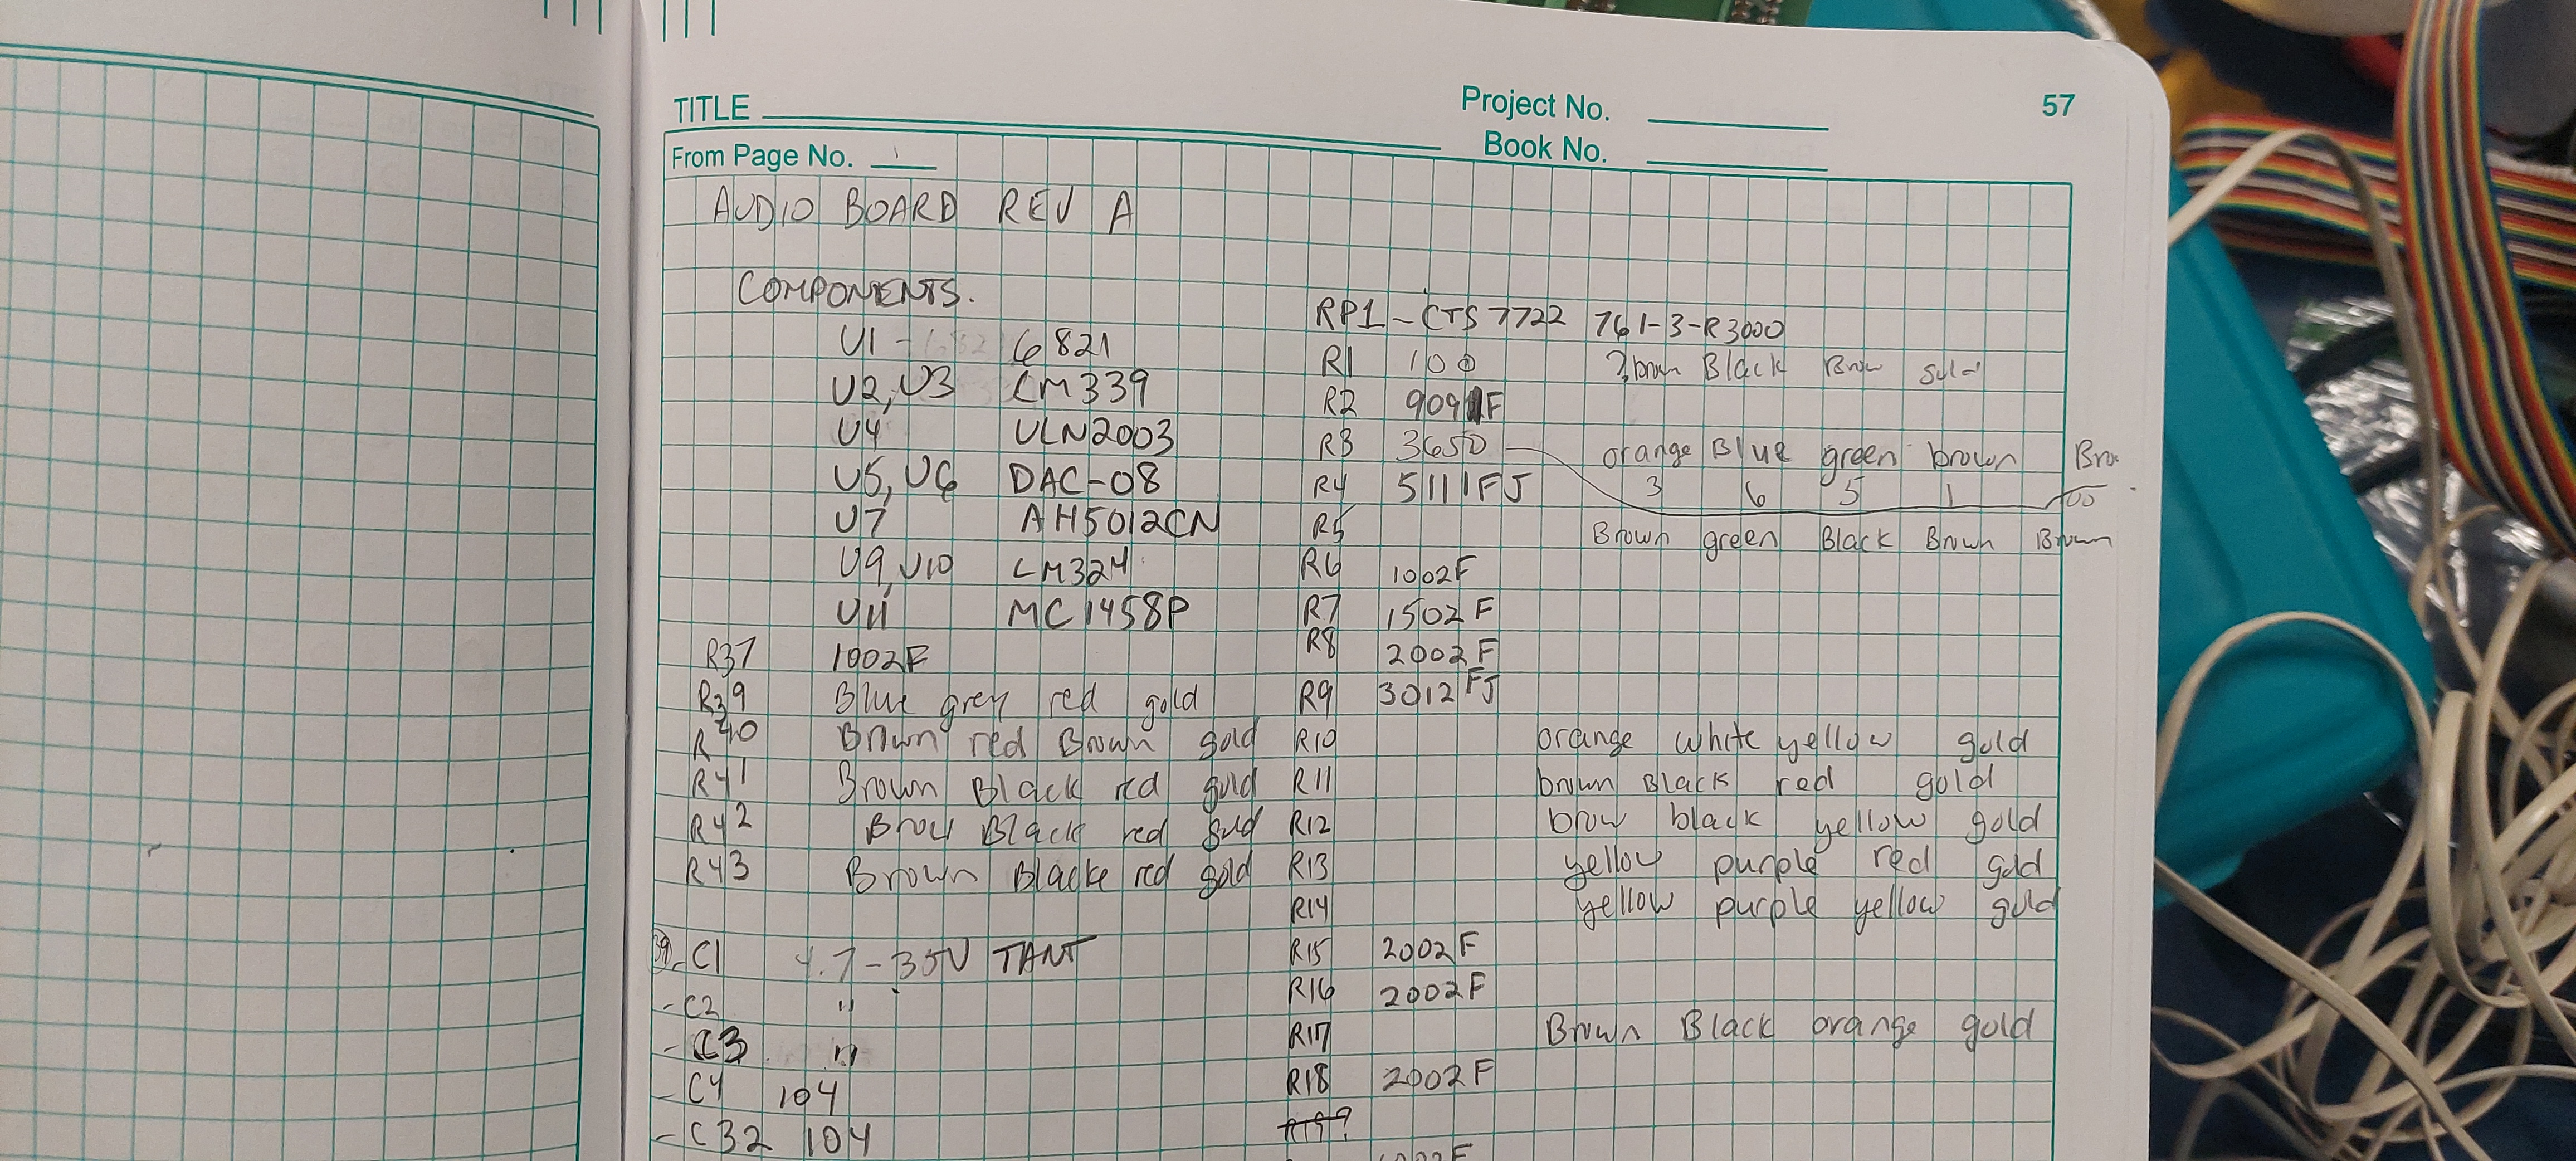 TITLE
Project No.
57
Book No.
From Page No.
AUDIO BOARD REV A
COMPONENTS.
U1 - 6821
U2, U3 LM339
U4 ULN2003
U5, U6 DAC-08
U7 AH5012CN
U9, U10 LM324
U11 MC1458P
R37 1002F
R39 Blue grey red gold
R40 Brown red Brown gold
R41 Brown Black red gold
R42 Brow Black red gold
R43 Brown Blacke red gold
C1 4.7-35V TANT
- C2 "
- C3 "
- C4 104
- C32 104
RP1 - CTS 7722 761-3-R3000
R1 100 ?brown Black Brow
R2 9091F
R3 3650 orange Blue green brown Bro
R4 5111FJ 3 6 5 1
R5 Brown green Black Brown Brown
R6 1002F
R7 1502F
R8 2002F
R9 3012FJ
R10 orange white yellow gold
R11 brown Black red gold
R12 brow black yellow gold
R13 yellow purple red gold
R14 yellow purple yellow gold
R15 2002F
R16 2002F
R17 Brown Black orange gold
R18 2002F